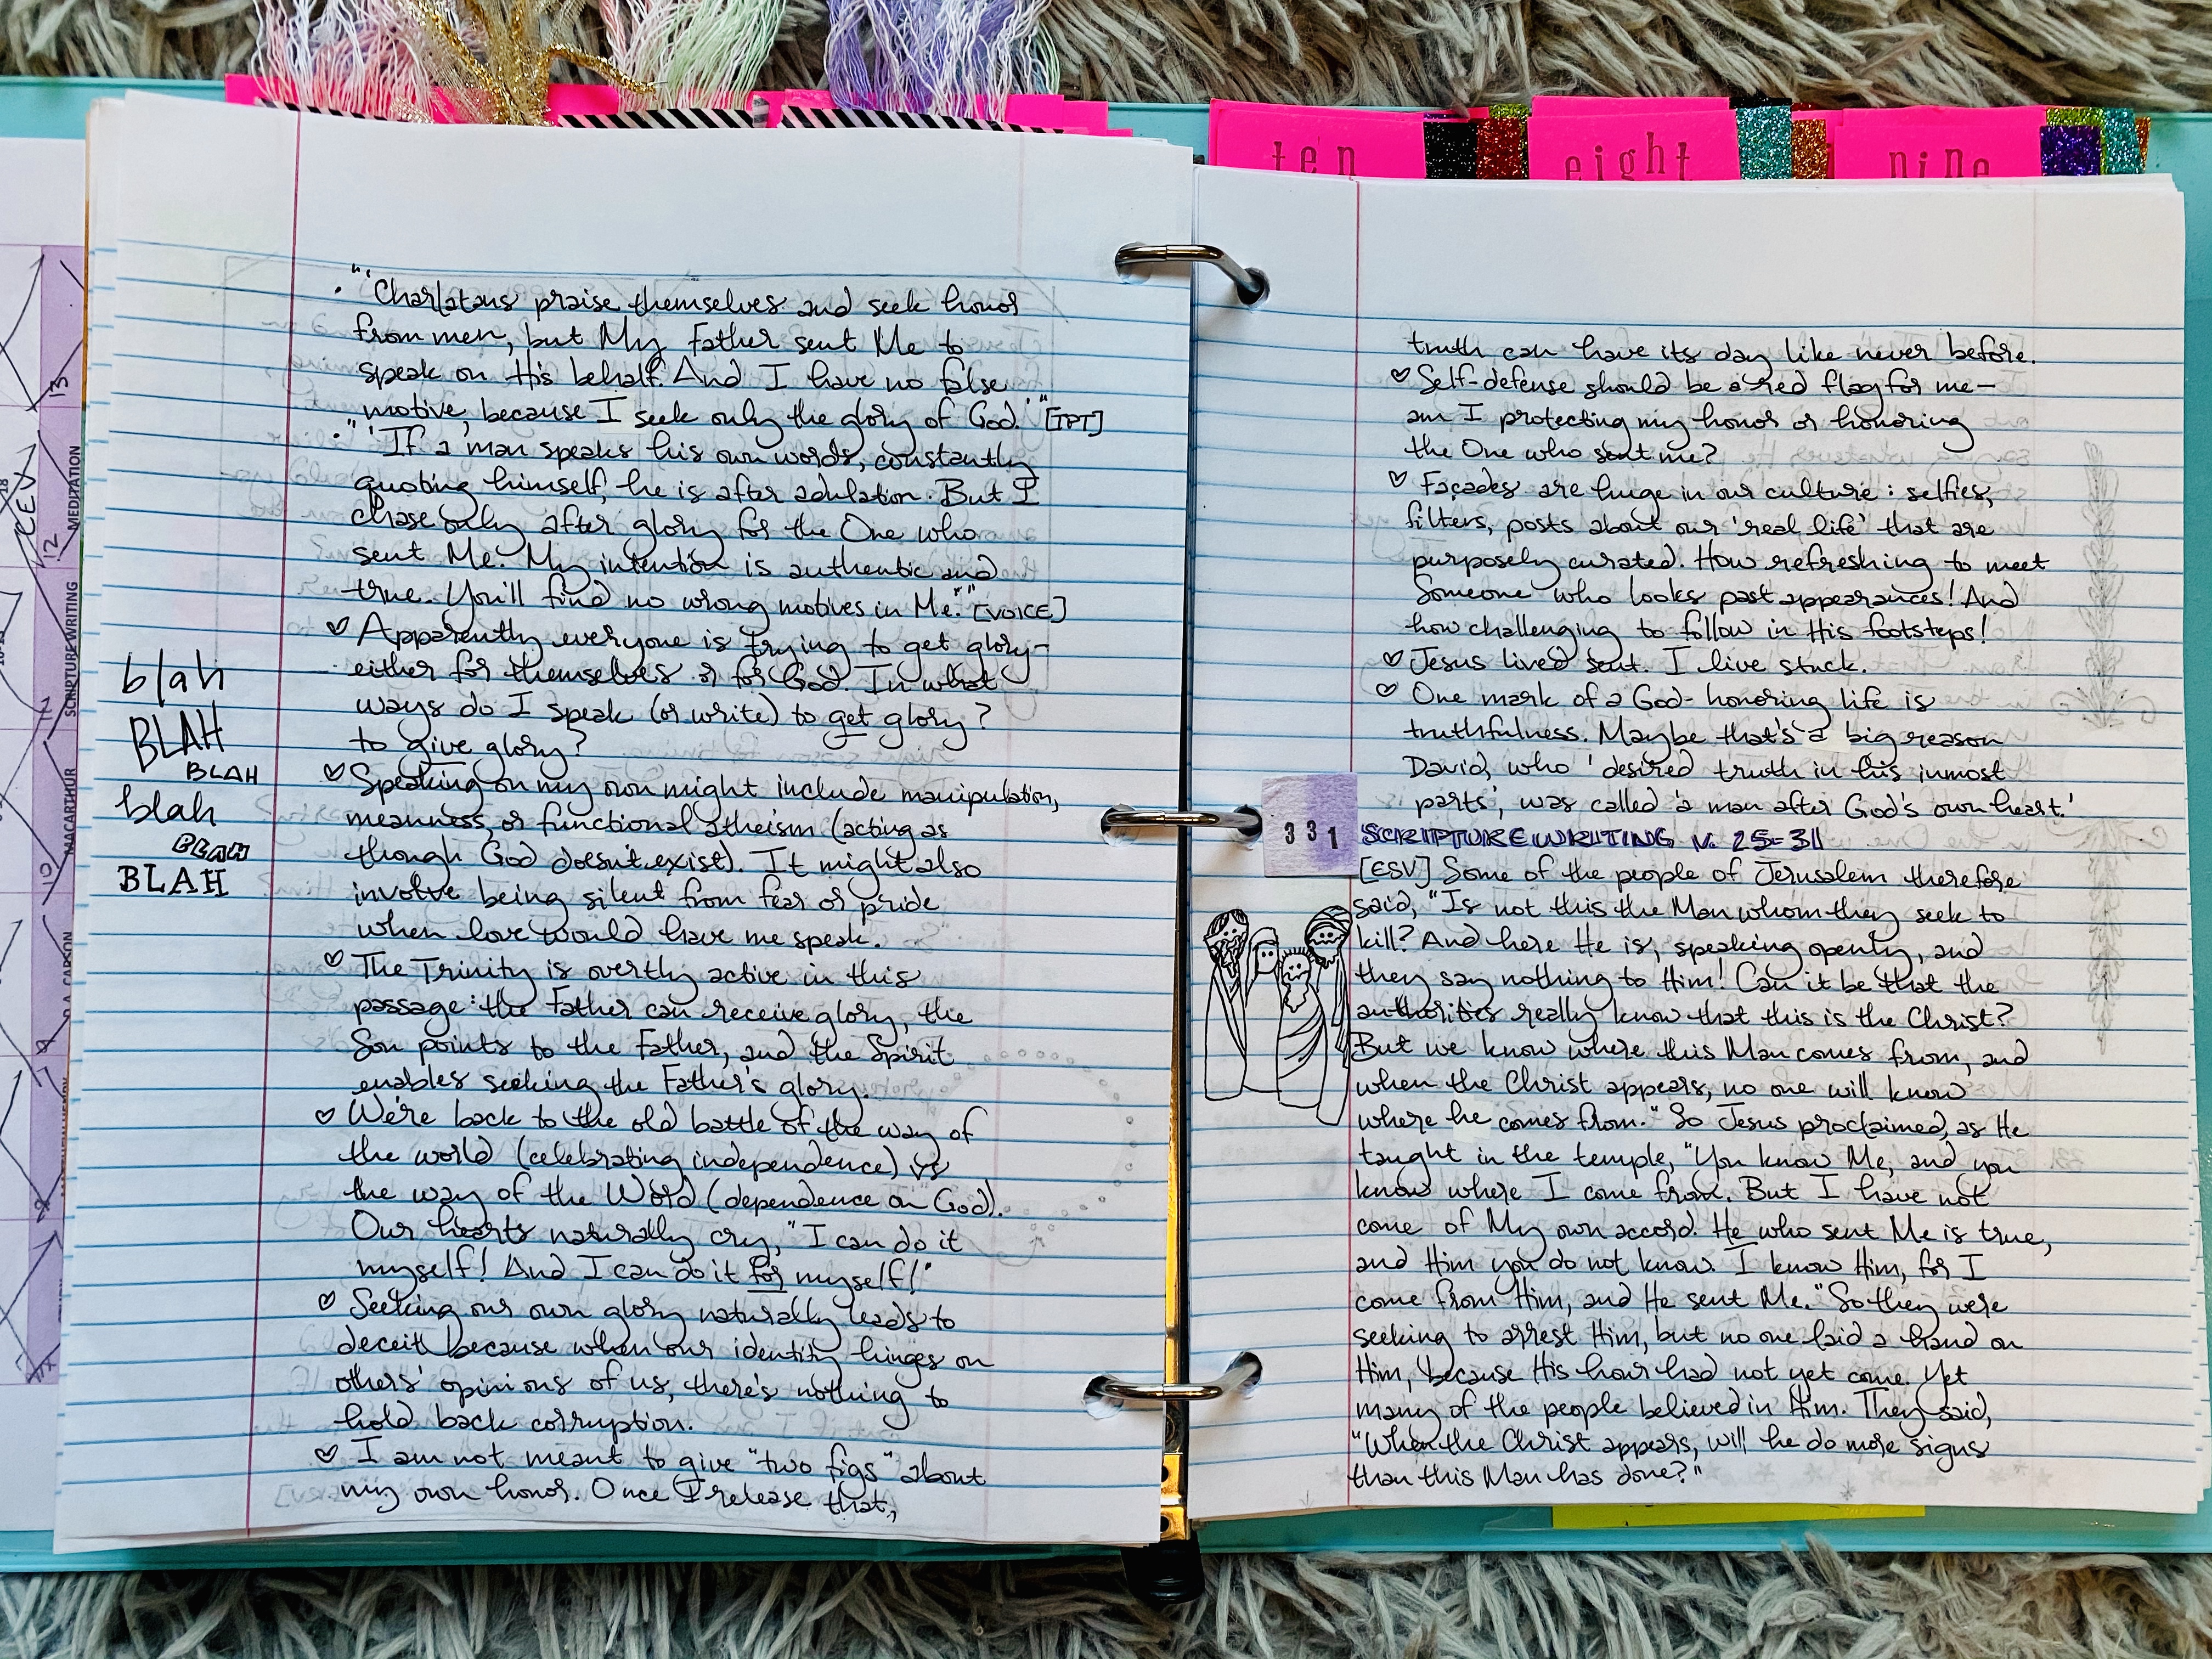 ten
eight
nine
13
MEDITATION
[CEV]
12
SCRIPTURE WRITING
11
MACARTHUR
10
D.A. CARSON
9
"'Charlatans praise themselves and seek honor
from men, but My Father sent Me to
speak on His behalf. And I have no false
motive, because I seek only the glory of God.'" [TPT]
"'If a man speaks his own words, constantly
quoting himself, he is after adulation. But I
chase only after glory for the One who
sent Me. My intention is authentic and
true. You'll find no wrong motives in Me.'" [VOICE]
♡ Apparently everyone is trying to get glory–
either for themselves or for God. In what
ways do I speak (or write) to get glory?
to give glory?
♡ Speaking on my own might include manipulation,
meanness, or functional atheism (acting as
though God doesn't exist). It might also
involve being silent from fear or pride
when love would have me speak.
♡ The Trinity is overtly active in this
passage: the Father can receive glory, the
Son points to the Father, and the Spirit
enables seeking the Father's glory.
♡ We're back to the old battle of the way of
the world (celebrating independence) vs
the way of the Word (dependence on God).
Our hearts naturally cry, "I can do it
myself! And I can do it for myself!"
♡ Seeking our own glory naturally leads to
deceit because when our identity hinges on
others' opinions of us, there's nothing to
hold back corruption.
♡ I am not meant to give "two figs" about
my own honor. Once I release that,
blah
BLAH
BLAH
blah
BLAH
BLAH
truth can have its day like never before.
♡ Self-defense should be a red flag for me–
am I protecting my honor or honoring
the One who sent me?
♡ Façades are huge in our culture: selfies,
filters, posts about our 'real life' that are
purposely curated. How refreshing to meet
Someone who looks past appearances! And
how challenging to follow in His footsteps!
♡ Jesus lived sent. I live stuck.
♡ One mark of a God-honoring life is
truthfulness. Maybe that's a big reason
David, who 'desired truth in his inmost
parts', was called 'a man after God's own heart.'
331
SCRIPTURE WRITING v. 25-31
[ESV] Some of the people of Jerusalem therefore
said, "Is not this the Man whom they seek to
kill? And here He is, speaking openly, and
they say nothing to Him! Can it be that the
authorities really know that this is the Christ?
But we know where this Man comes from, and
when the Christ appears, no one will know
where he comes from." So Jesus proclaimed, as He
taught in the temple, "You know Me, and you
know where I come from. But I have not
come of My own accord. He who sent Me is true,
and Him you do not know. I know Him, for I
come from Him, and He sent Me." So they were
seeking to arrest Him, but no one laid a hand on
Him, because His hour had not yet come. Yet
many of the people believed in Him. They said,
"When the Christ appears, will he do more signs
than this Man has done?"